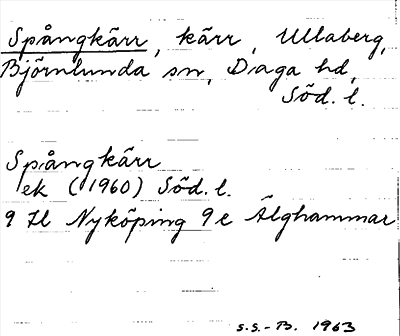 Spångkärr, kärr, Ullaberg,
Björnlunda sn, Daga hd,
Söd. l.
Spångkärr
ek (1960) Söd. l.
9 H Nyköping 9 e Älghammar
S.S.-B. 1963